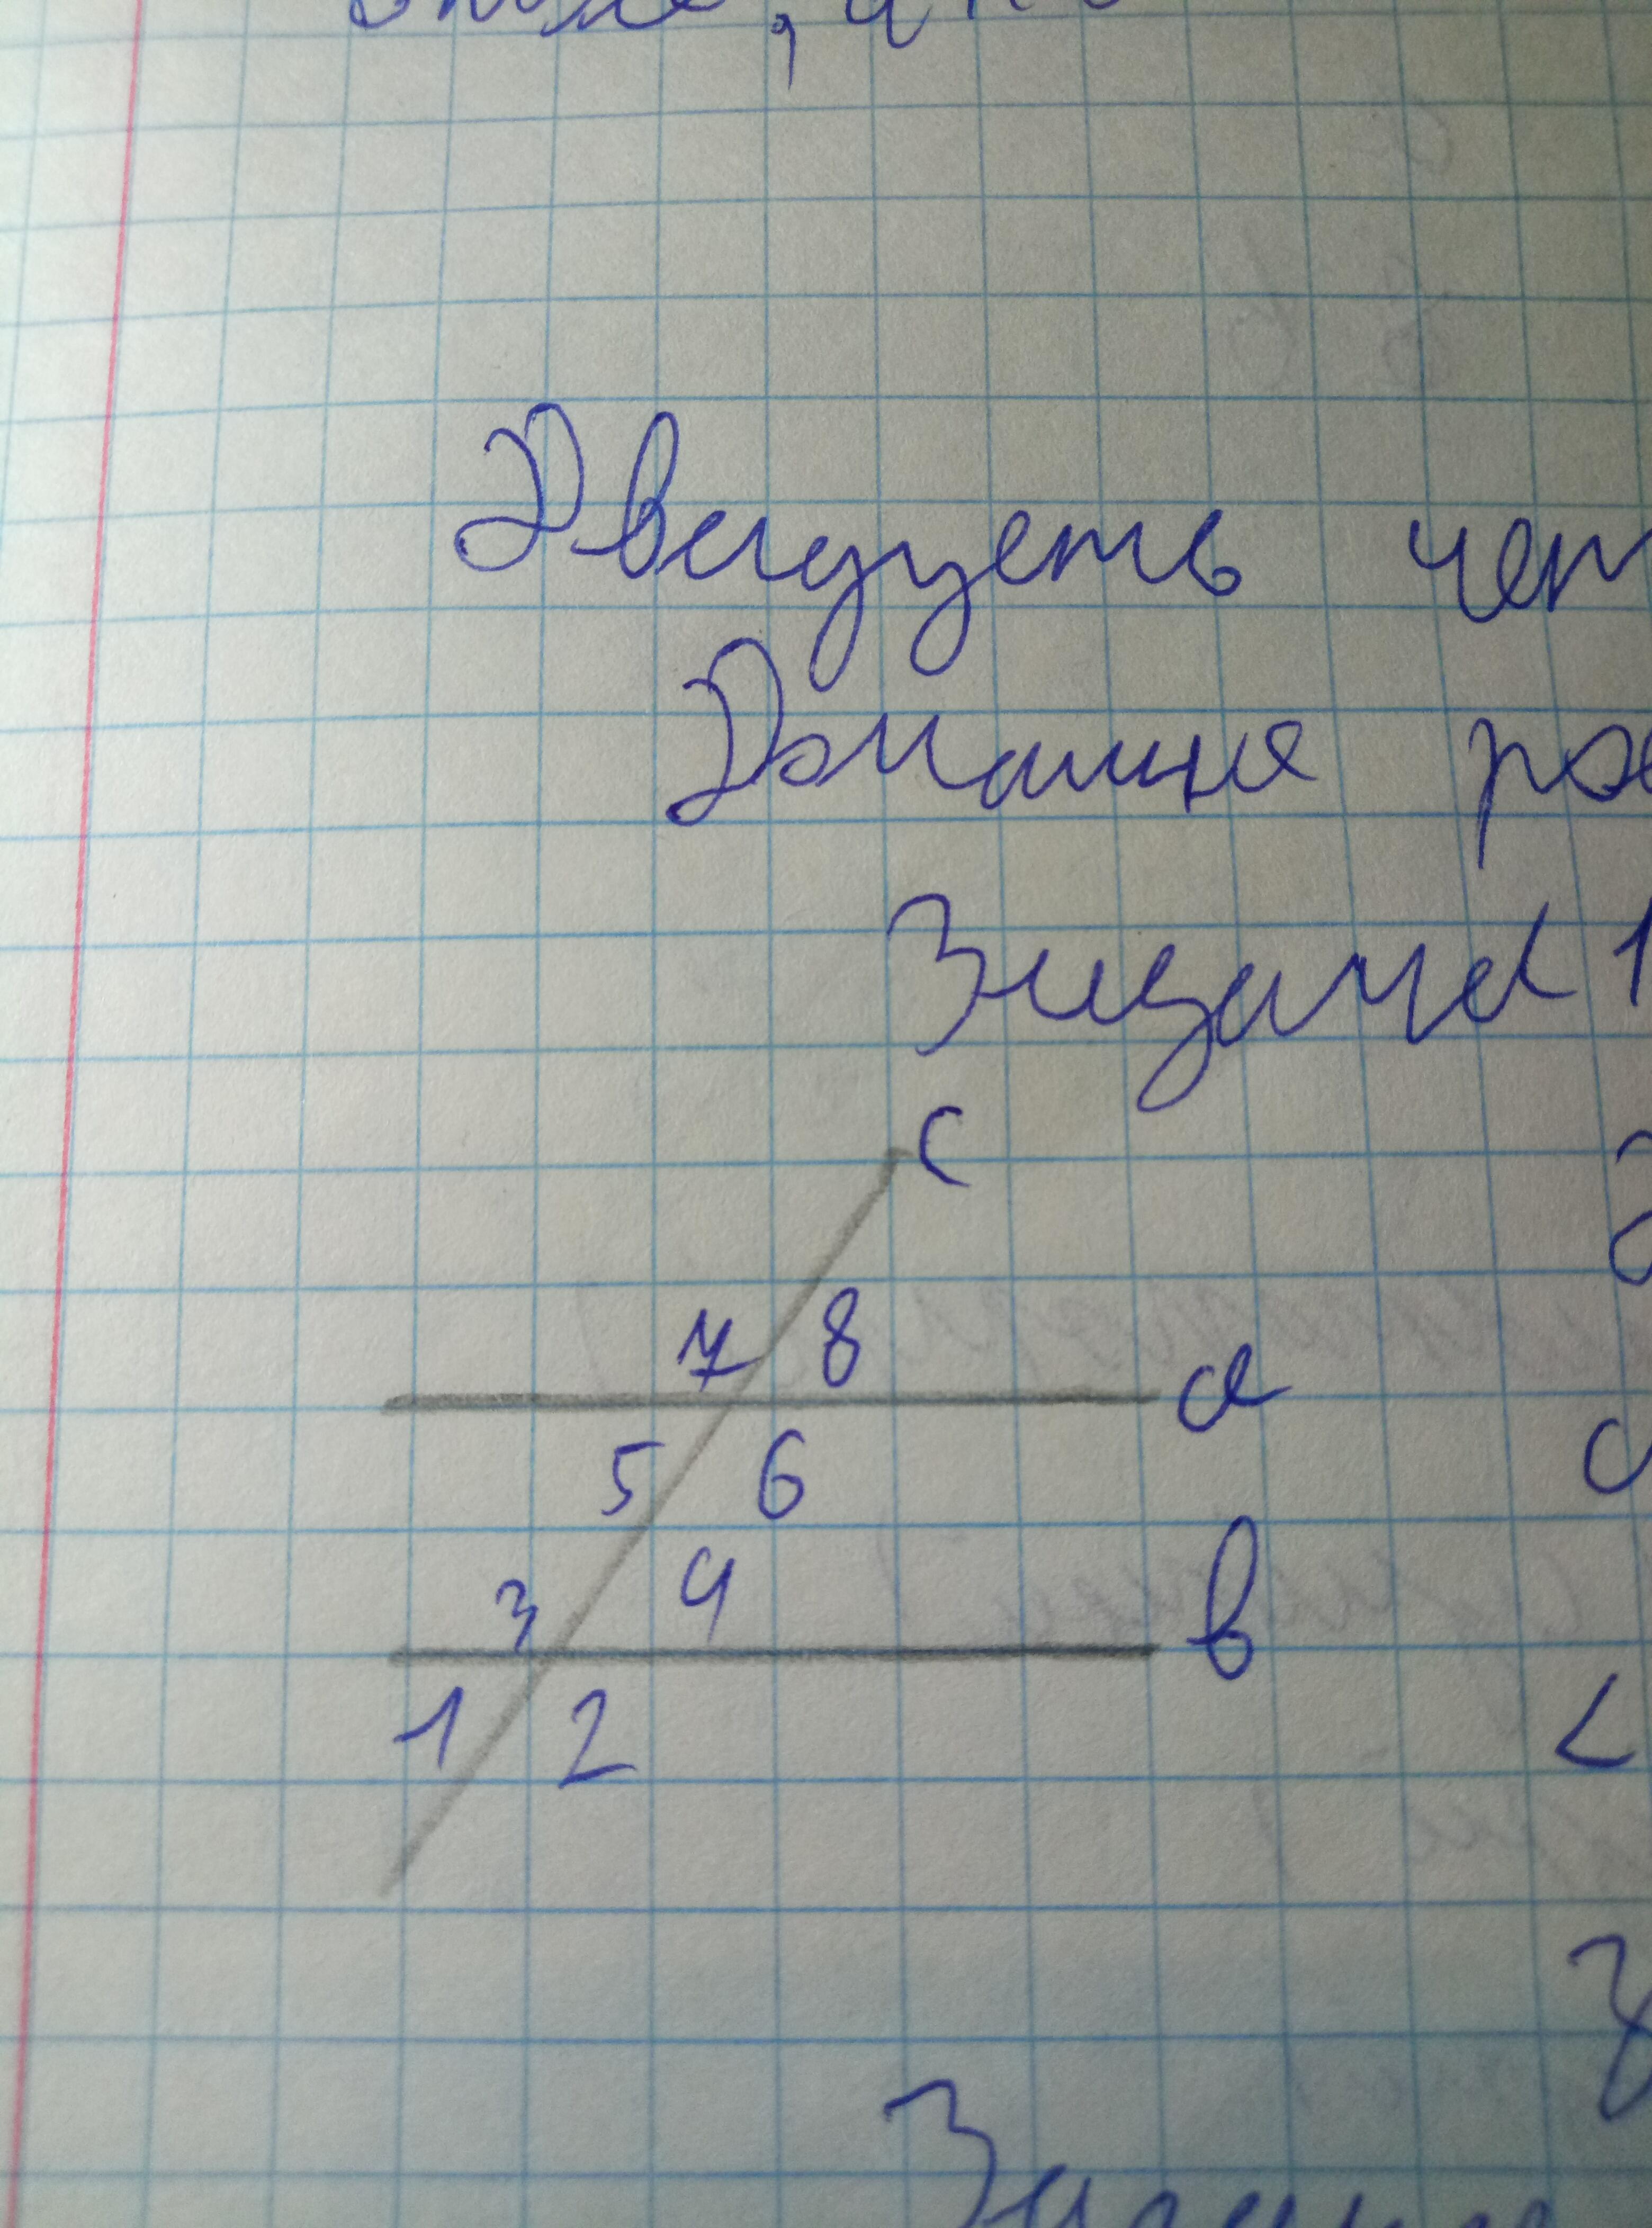 Двадцать чет
Домашня ра
Задача 1
c
7 8
a
5 6
3 4
в
1 2
<